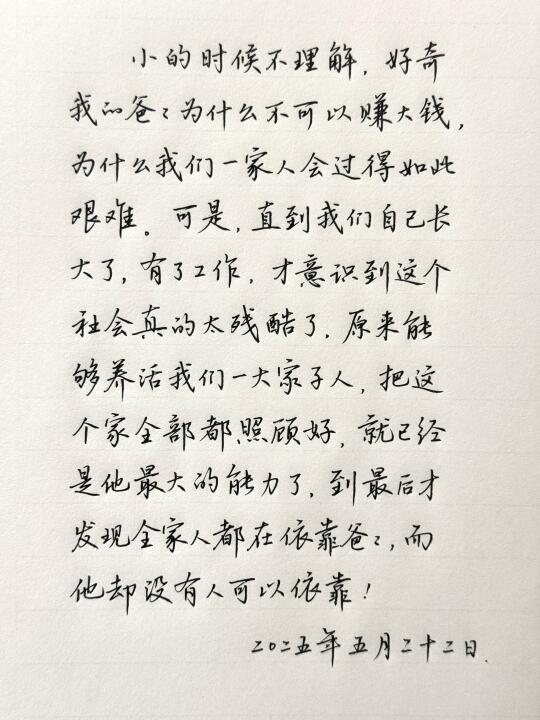 小的时候不理解，好奇
我的爸爸为什么不可以赚大钱，
为什么我们一家人会过得如此
艰难。可是，直到我们自己长
大了，有了工作，才意识到这个
社会真的太残酷了，原来能
够养活我们一大家子人，把这
个家全部都照顾好，就已经
是他最大的能力了，到最后才
发现全家人都在依靠爸爸，而
他却没有人可以依靠！
二〇二五年五月二十二日.